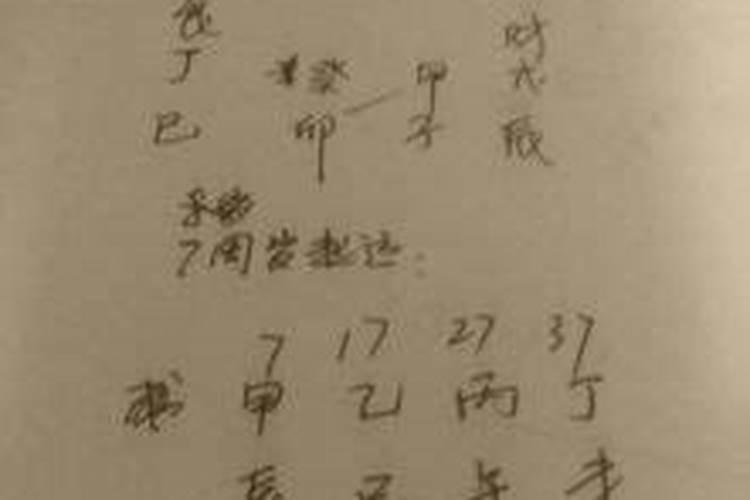 丁 癸 甲 戊
巳 卯 子 辰
7周岁起运:
7 17 27 37
甲 乙 丙 丁
辰 巳 午 未